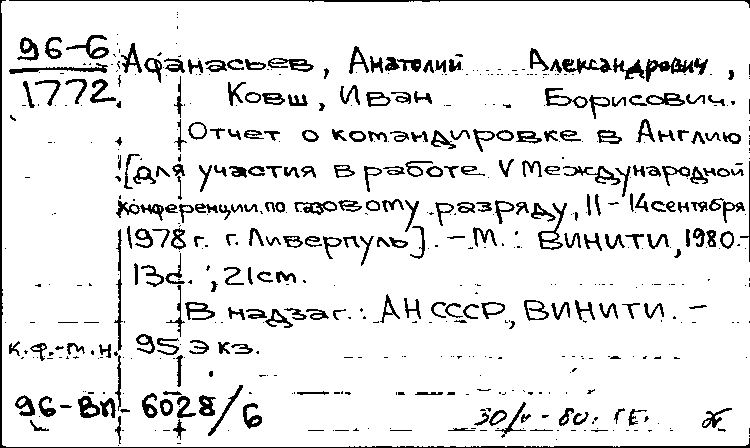 96-6
1772
Афанасьев, Анатолий Александрович,
Ковш, Иван Борисович.
Отчет о командировке в Англию
[для участия в работе V Международной
конференции по газовому разряду, 11-14 сентября
1978 г. г. Ливерпуль]. - М.: ВИНИТИ, 1980.-
13с.; 21 см.
В надзаг.: АН СССР, ВИНИТИ. -
к.ф.-м.н. 95 экз.
96-ВП-6028/6
30/V-80. Г.Е.